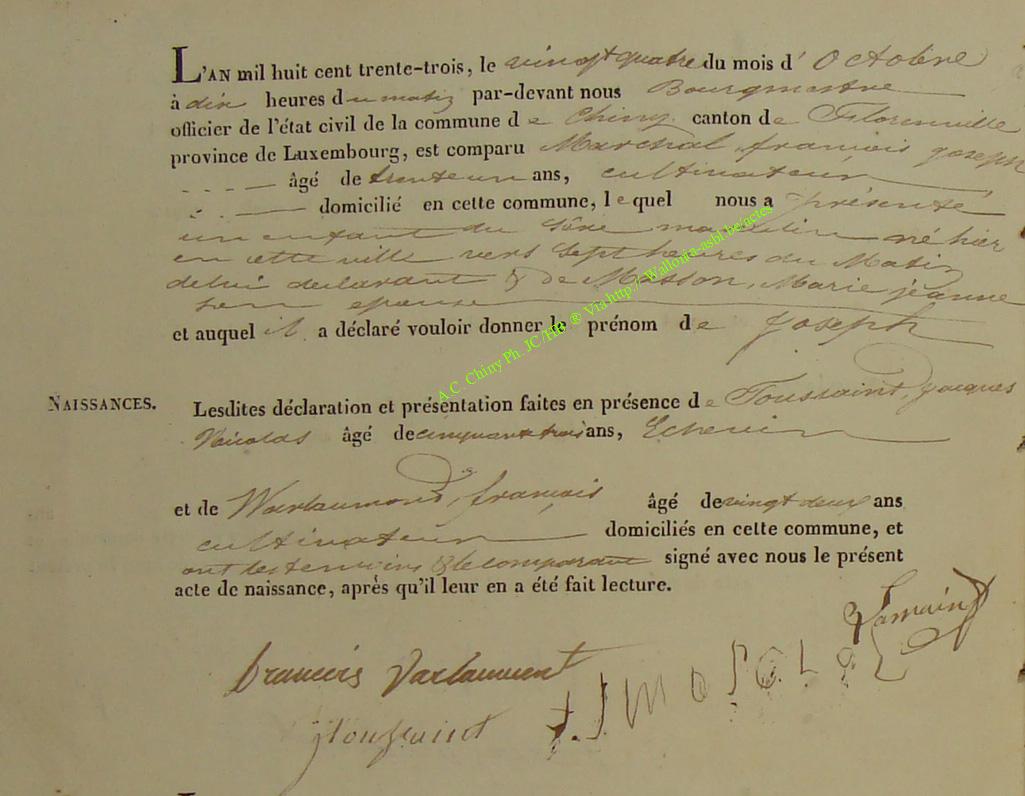 L'AN mil huit cent trente-trois, le vingt quatre du mois d' Octobre
à dix heures du matin par-devant nous Bourgmestre
officier de l'état civil de la commune de Chiny canton de Florenville
province de Luxembourg, est comparu Marchal, françois joseph
âgé de trente un ans, cultivateur
domicilié en cette commune, lequel nous a présenté
un enfant du sexe masculin né hier
en cette ville vers sept heures du Matin
de lui déclarant & de Masson, Marie jeanne
son epouse
et auquel il a déclaré vouloir donner le prénom de joseph
NAISSANCES.
Lesdites déclaration et présentation faites en présence de Toussaint, jacques
Nicolas âgé de cinquante trois ans, Echevin
et de Warlaumond, françois âgé de vingt deux ans
cultivateur domiciliés en cette commune, et
ont les temoins & le comparant signé avec nous le présent
acte de naissance, après qu'il leur en a été fait lecture.
francois Varlaumont
jtoussaint
A.C. Chiny Ph. JC/HB ® Via http://Wallonia-asbl.be/actes